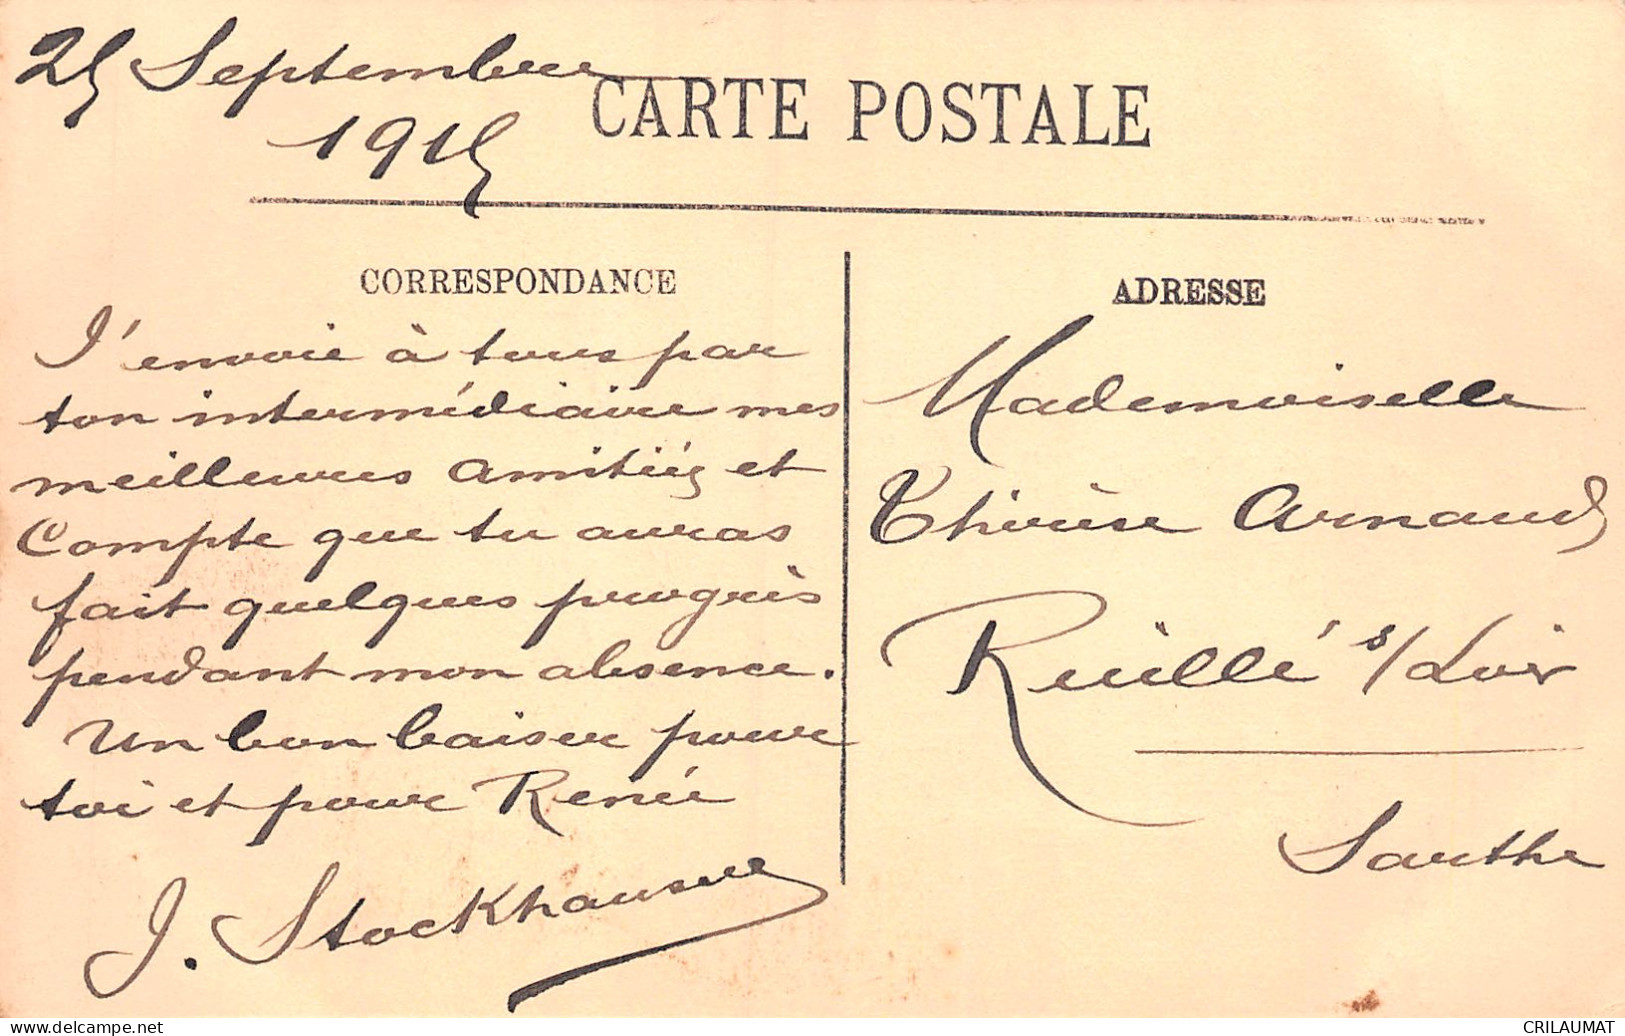 25 Septembre
1915
CARTE POSTALE
CORRESPONDANCE
J'envoie à tous par
ton intermédiaire mes
meilleures amitiés et
compte que tu auras
fait quelques progrès
pendant mon absence.
Un bon baiser pour
toi et pour Renée
J. Stockhausen
ADRESSE
Mademoiselle
Thérèse Arnaud
Ruillé s/Loir
Sarthe
www.delcampe.net
CRILAUMAT